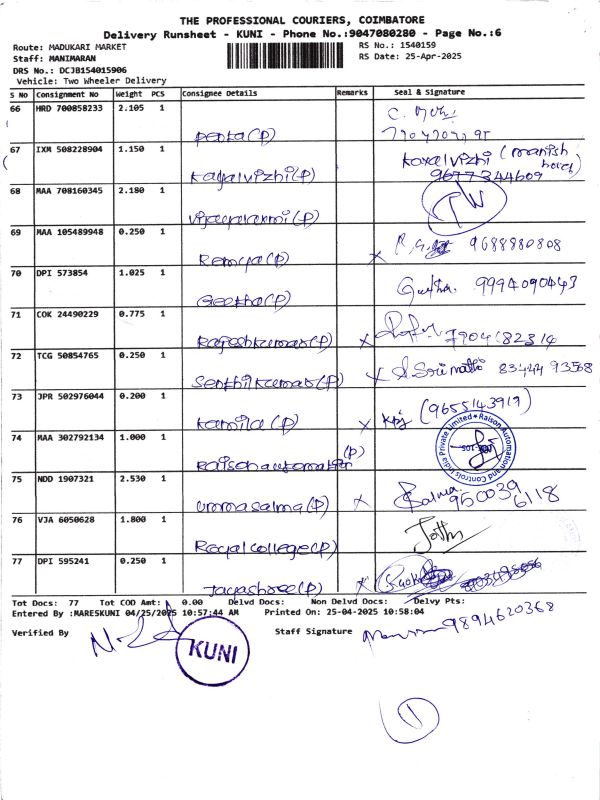 THE PROFESSIONAL COURIERS, COIMBATORE
Delivery Runsheet - KUNI - Phone No.:9047080280 - Page No.:6
Route: MADUKARI MARKET
RS No.: 1540159
Staff: MANIMARAN
RS Date: 25-Apr-2025
DRS No.: DCJB154015906
Vehicle: Two Wheeler Delivery
S No Consignment No Weight PCS Consignee Details Remarks Seal & Signature
66 HRD 700858233 2.105 1
67 IXM 508228904 1.150 1 Kayalvizhi (Manish
Kayalvizhi(P) 9677344609
68 MAA 708160345 2.180 1
Vijayalaxmi(P)
69 MAA 105489948 0.250 1 9688880808
Remya(P)
70 DPI 573854 1.025 1 Geetha. 9994090443
Geetha(P)
71 COK 24490229 0.775 1
Rajeshkumar(P) 7904682314
72 TCG 50854765 0.250 1 S. Srimathi 83444 93568
Senthilkumar(P)
73 JPR 502976044 0.200 1 (9655143919)
Kamila(P)
74 MAA 302792134 1.000 1 Raison Automation and Controls India Private Limited
Raison automation (P)
75 NDD 1907321 2.530 1 Salma
ummasalma(P) 950039 6118
76 VJA 6050628 1.800 1 Jothi
Royal College(P)
77 DPI 595241 0.250 1
Jayashree(P)
Tot Docs: 77 Tot COD Amt: 0.00 Delvd Docs: Non Delvd Docs: Delvy Pts:
Entered By :MARESKUNI 04/25/2025 10:57:44 AM Printed On: 25-04-2025 10:58:04
Verified By KUNI Staff Signature 9894620368
1